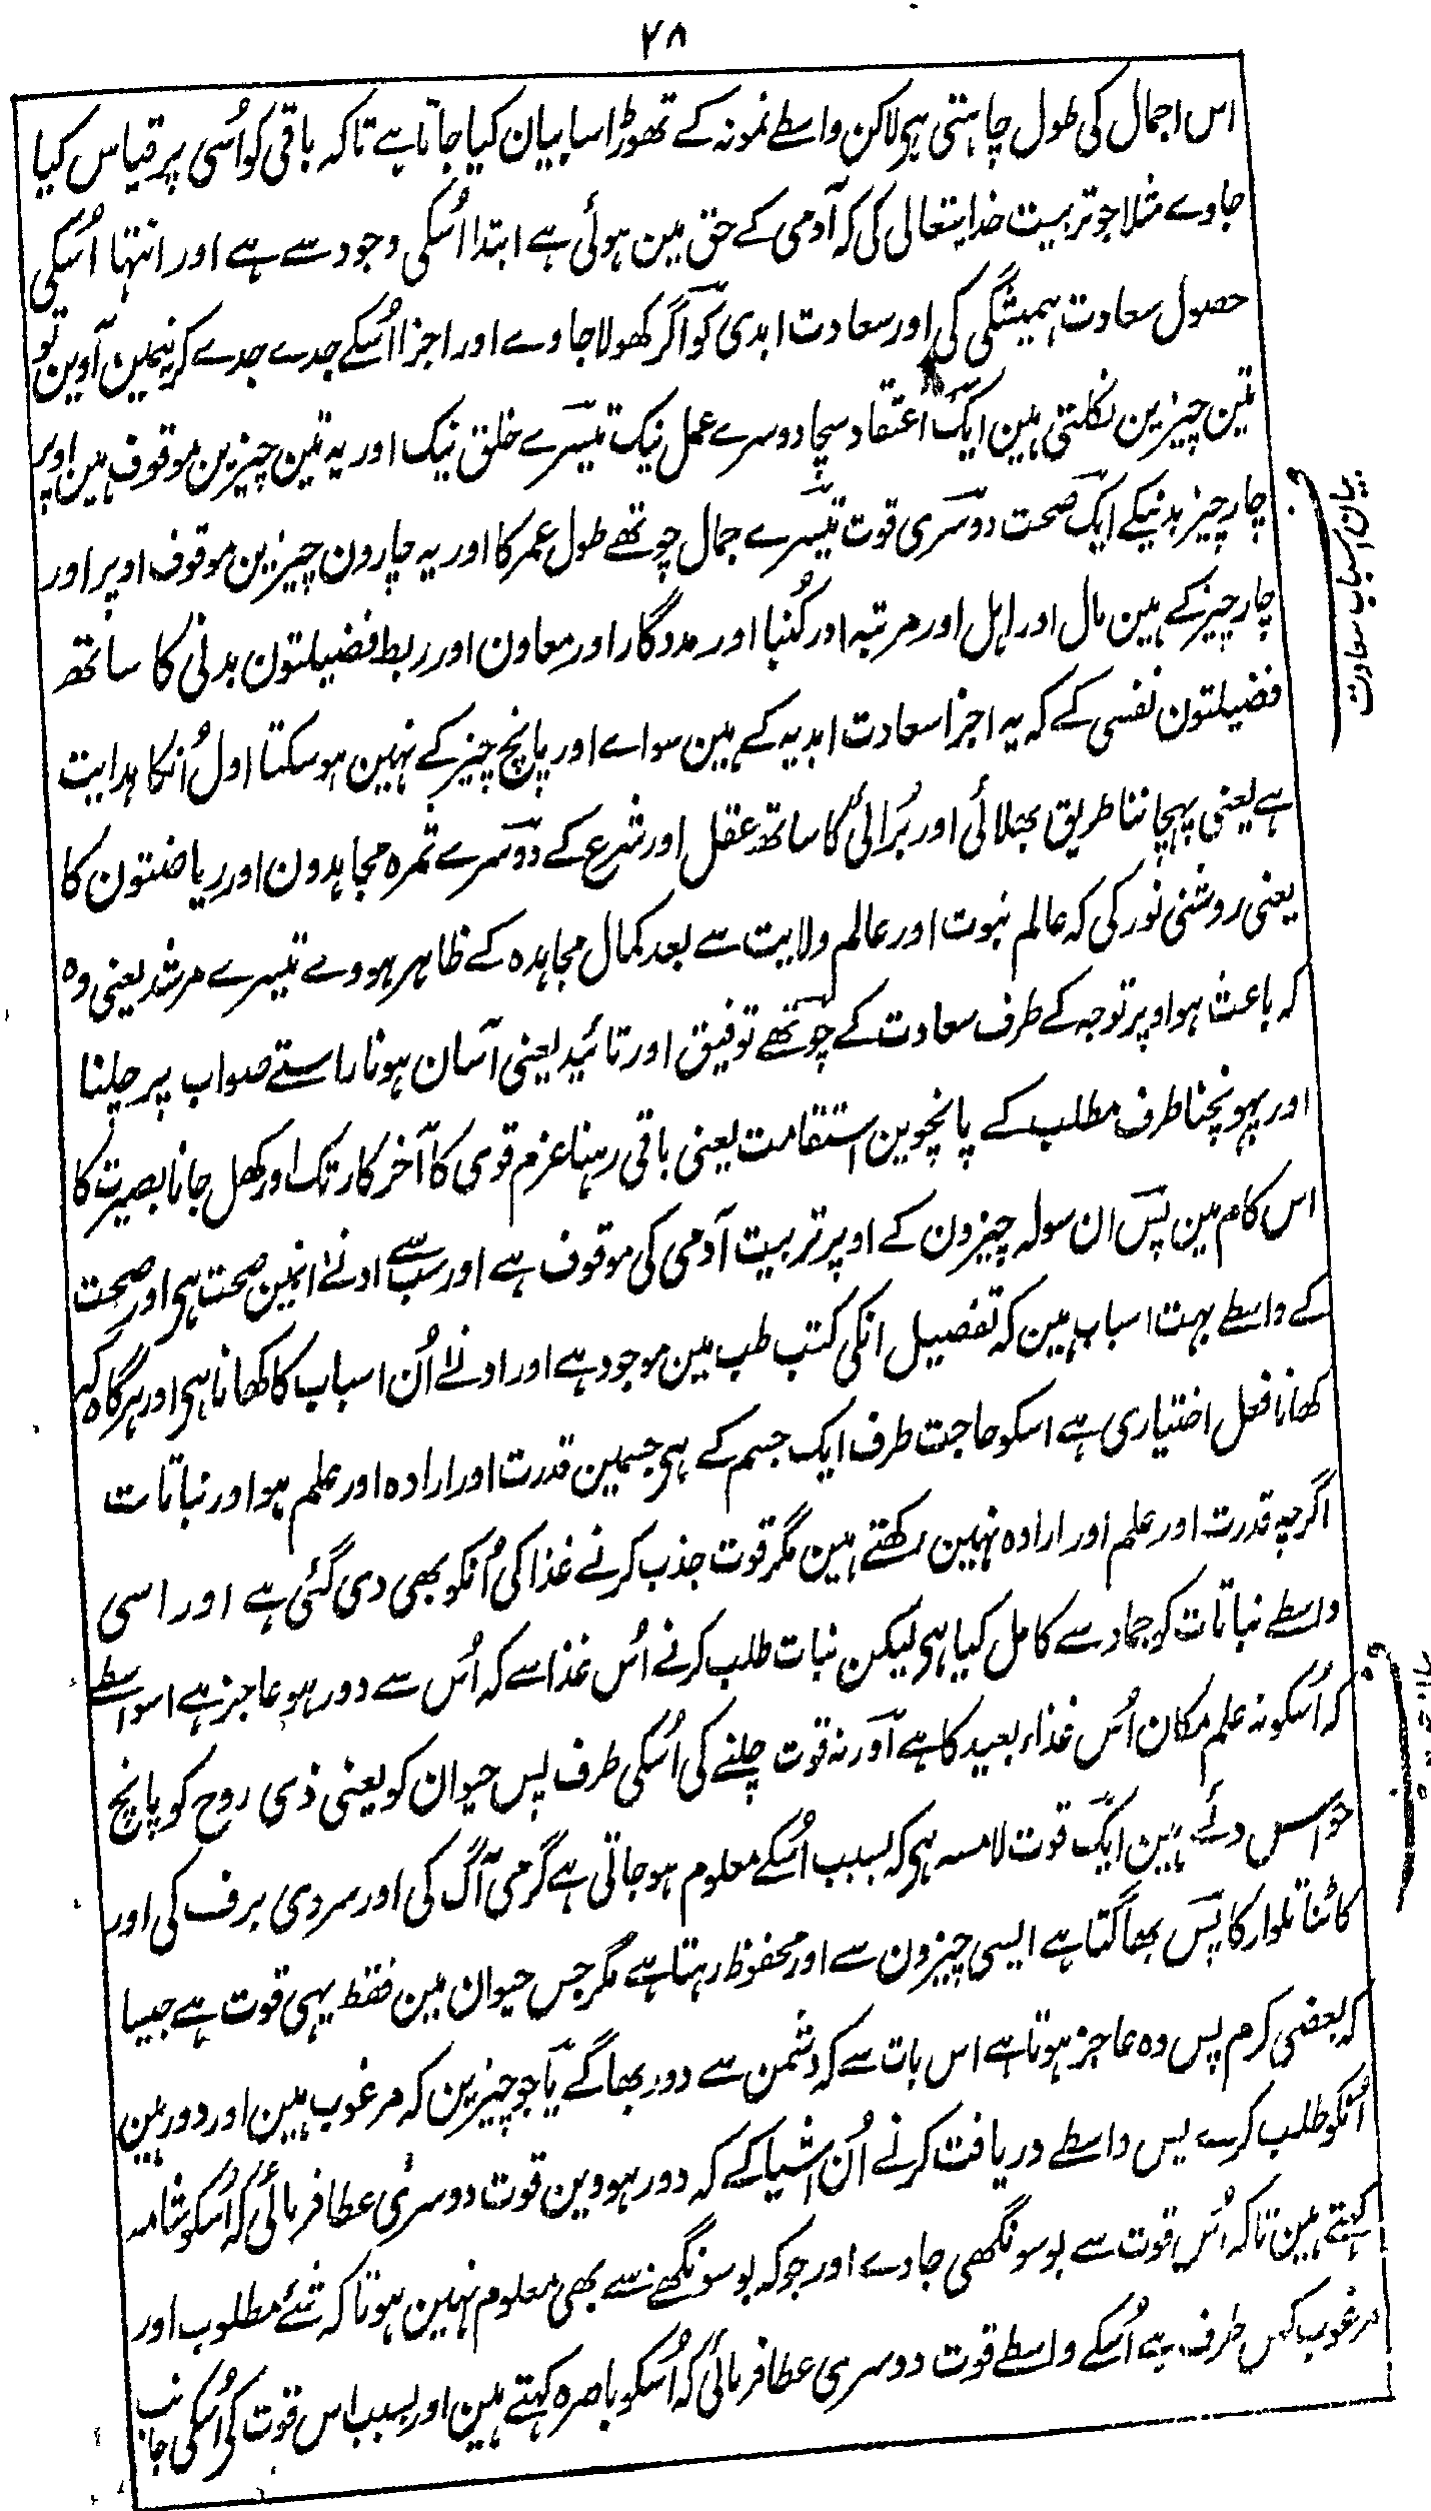 ۲۸
اس اجمال کی طول چاہتی ہی لاکن واسطے نمونہ کے تھوڑا سا بیان کیا جاتا ہے تا کہ باقی کو اُسی پر قیاس کیا
جاوے مثلا جو تربیت خدایتعالی کی کہ آدمی کے حق مین ہوئی ہے ابتدا اُسکی وجود سے ہے اور انتہا اُسکی
حصول سعادت ہمیشگی کی اور سعادت ابدی کو اگر کھولا جاوے اور اجزا اُسکے جدے جدے کرنیمین آوین تو
تین چیزین نکلتی ہین ایک اعتقاد سچا دوسرے عمل نیک تیسرے خلق نیک اور یہ تین چیزین موقوف ہین اوپر
چار چیز بدنیکے ایک صحت دوسری قوت تیسرے جمال چوتھے طول عمر کا اور یہ چارون چیزین موقوف اوپر اور
چار چیز کے ہین مال اور اہل اور مرتبہ اور کُنبا اور مددگار اور معاون اور ربط فضیلتون بدنی کا ساتھ
فضیلتون نفسی کے کہ یہ اجزا سعادت ابدیہ کے ہین سواے اور پانچ چیز کے نہین ہو سکتا اول اُنکا ہدایت
ہے یعنی پہچاننا طریق بھلائی اور بُرائی کا ساتھ عقل اور شرع کے دوسرے ثمرہ مجاہدون اور ریاضتون کا
یعنی روشنی نور کی کہ عالم نبوت اور عالم ولایت سے بعد کمال مجاہدہ کے ظاہر ہووے تیسرے مرشد یعنی وہ
کہ باعث ہو اوپر توجہ کے طرف سعادت کے چوتھے توفیق اور تائید یعنی آسان ہونا راستے صواب پر چلنا
اور پہونچنا طرف مطلب کے پانچوین استقامت یعنی باقی رہنا عزم قوی کا آخر کار تک اور کھل جانا بصیرت کا
اس کام مین پس ان سولہ چیزون کے اوپر تربیت آدمی کی موقوف ہے اور سب سے ادنےٰ انمین صحت ہی اور صحت
کے واسطے بہت اسباب ہین کہ تفصیل انکی کتب طب مین موجود ہے اور ادنےٰ اُن اسباب کا کھانا ہی اور ہر گاہ کہ
کھانا فعل اختیاری ہے اسکو حاجت طرف ایک جسم کے ہی جسمین قدرت اور ارادہ اور علم ہو اور نباتات
اگرچہ قدرت اور علم اور ارادہ نہین رکھتے ہین مگر قوت جذب کرنے غذا کی اُنکو بھی دی گئی ہے اور اسی
واسطے نباتات کو جماد سے کامل کیا ہی لیکن نبات طلب کرنے اُس غذا سے کہ اُس سے دور ہو عاجز ہے اسواسطے
کہ اُسکو نہ علم مکان اُس غذاء بعید کا ہے اور نہ قوت چلنے کی اُسکی طرف پس حیوان کو یعنی ذی روح کو پانچ
حواس دئے ہین ایک قوت لامسہ ہی کہ بسبب اُسکے معلوم ہو جاتی ہے گرمی آگ کی اور سردی برف کی اور
کاٹنا تلوار کا پس بھاگتا ہے ایسی چیزون سے اور محفوظ رہتا ہے مگر جس حیوان مین فقط یہی قوت ہے جیسا
کہ بعضی کرم پس وہ عاجز ہوتا ہے اس بات سے کہ دشمن سے دور بھاگے یا جو چیزین کہ مرغوب ہین اور دور ہین
اُنکو طلب کرے پس واسطے دریافت کرنے اُن اشیا کے کہ دور ہووین قوت دوسری عطا فرمائی کہ اُسکو شامہ
کہتے ہین تا کہ اُس قوت سے بو سونگھی جاوے اور جو کہ بو سونگھنے سے بھی معلوم نہین ہوتا کہ شئے مطلوب اور
مرغوب کس طرف ہے اُسکے واسطے قوت دوسری عطا فرمائی کہ اُسکو باصرہ کہتے ہین اور بسبب اس قوت کی اُسکی جانب
بیان اسباب سعادت